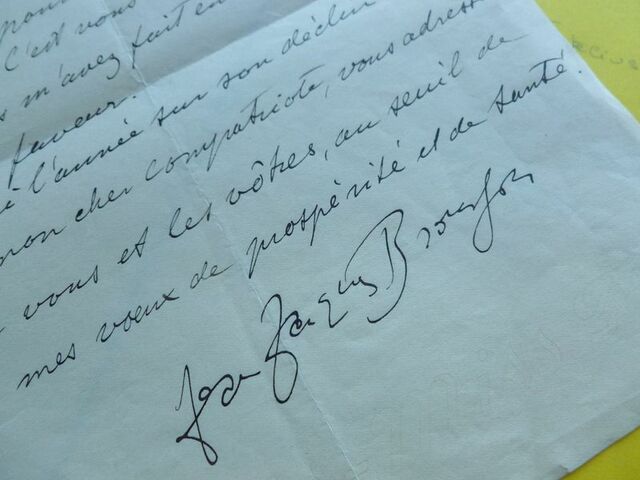 pour
C'est vous
m'avez fait en
faveur.
l'année sur son déclin
mon cher compatriote, vous adresse
vous et les vôtres, au seuil de
mes vœux de prospérité et de santé.
Jean Jacques Brousson